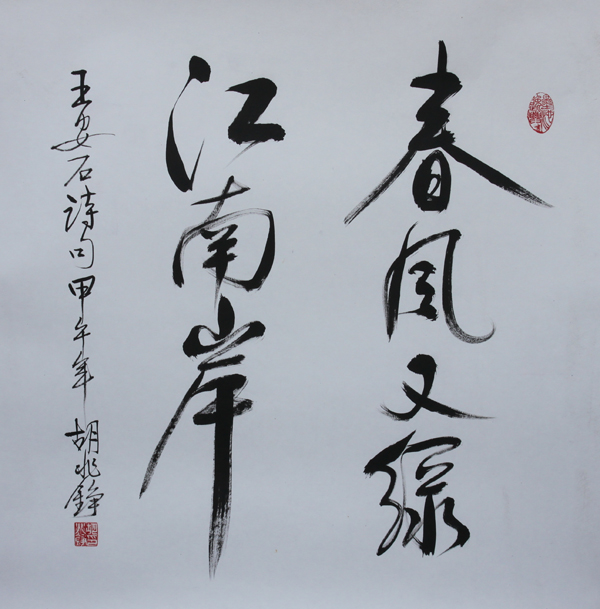 春风又绿
江南岸
王安石诗句甲午年 胡兆铮